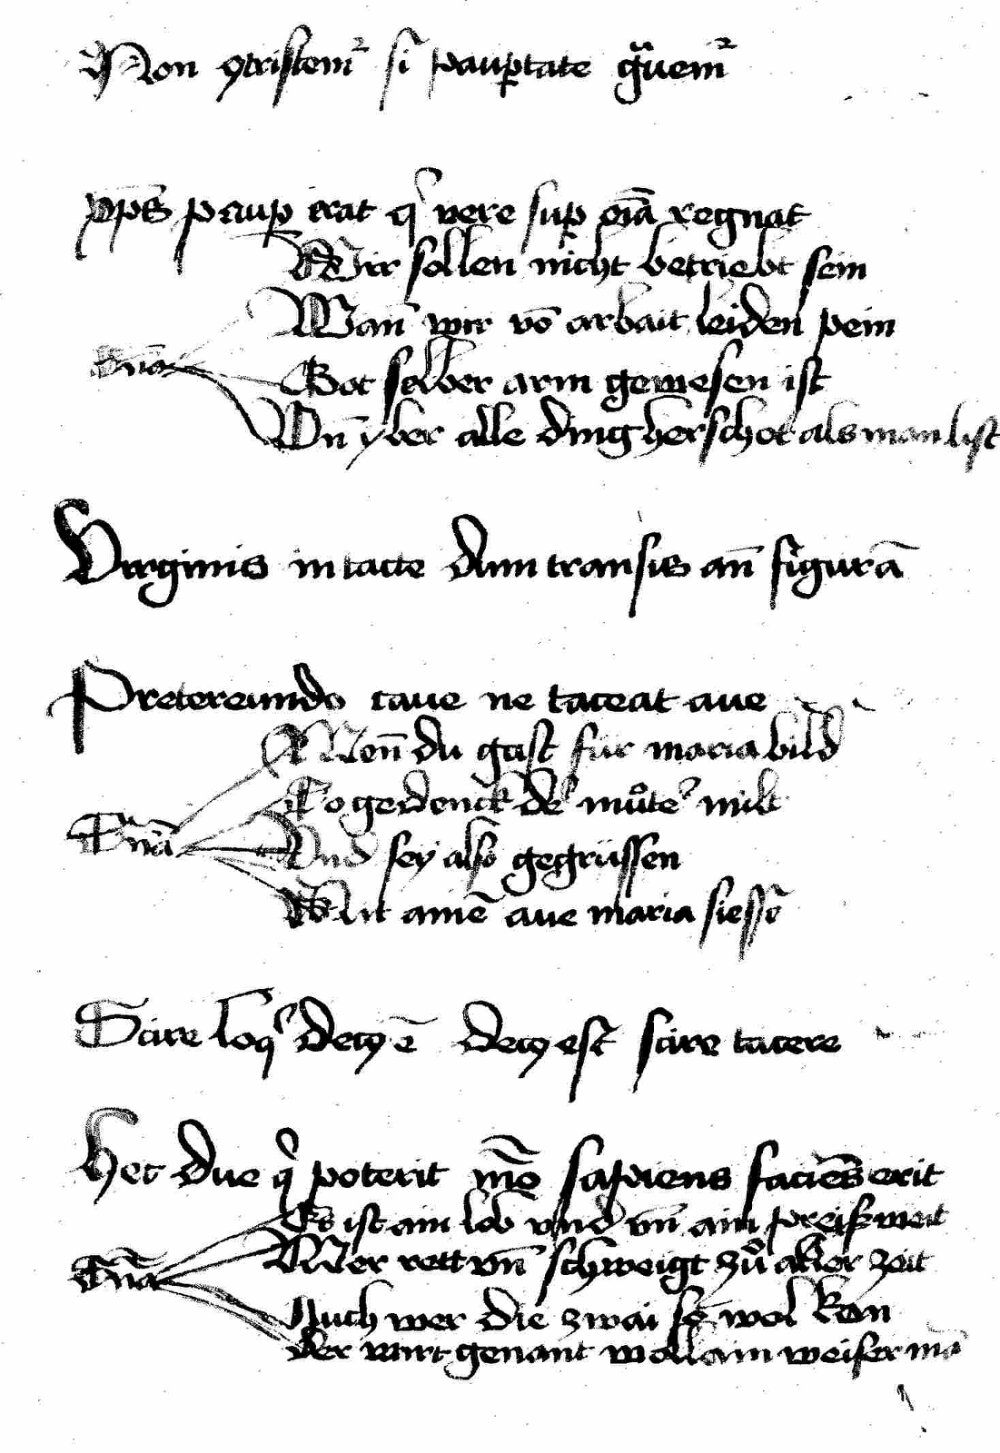 Non ꝯtristemr̃ si paup̱tate g̃uem̃r
xp̄s paup̱ erat q̇ vere sup̱ oīa regnat
Wir sollen nicht betriebt sein
Wañ wir võ arbait leiden pein
Got selber arm gewesen ist
Vñ yber alle ding herschet als man list
Virginis intacte dum transis an̄ figurā
Pretereundo caue ne taceat aue
Wen̄ du gast fur maria bild
So gedenck de᷑ můte᷑ milt
Vnd sey also gegrüssen
Mit amē aue maria siessē
Scire loqͥ decꝯ ē decꝯ est scire tacere
Hec due q̇ poterit mō sapiens faciens erit
Es ist ain lob vnd vñ ain preiß weit
Wer rett vñ schweigt zů aller zeit
Auch wer die zwai so wol kan
der wirt genant wol ain weiser mā